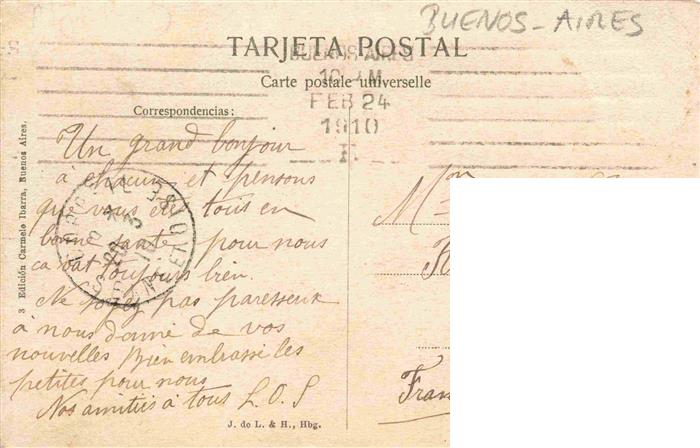 BUENOS-AIRES
TARJETA POSTAL
Carte postale universelle
BUENOS AIRES
10 M
FEB 24
1910
Correspondencias:
Un grand bonjour
à chacun et pensons
que vous êtes tous en
bonne santé pour nous
ca vat toujours bien.
Ne soyez pas paresseux
à nous donné de vos
nouvelles Bien embrassé les
petites pour nous
Nos amitiés à tous L.O.S
Fran
3 Edición Carmelo Ibarra, Buenos Aires.
J. de L. & H., Hbg.